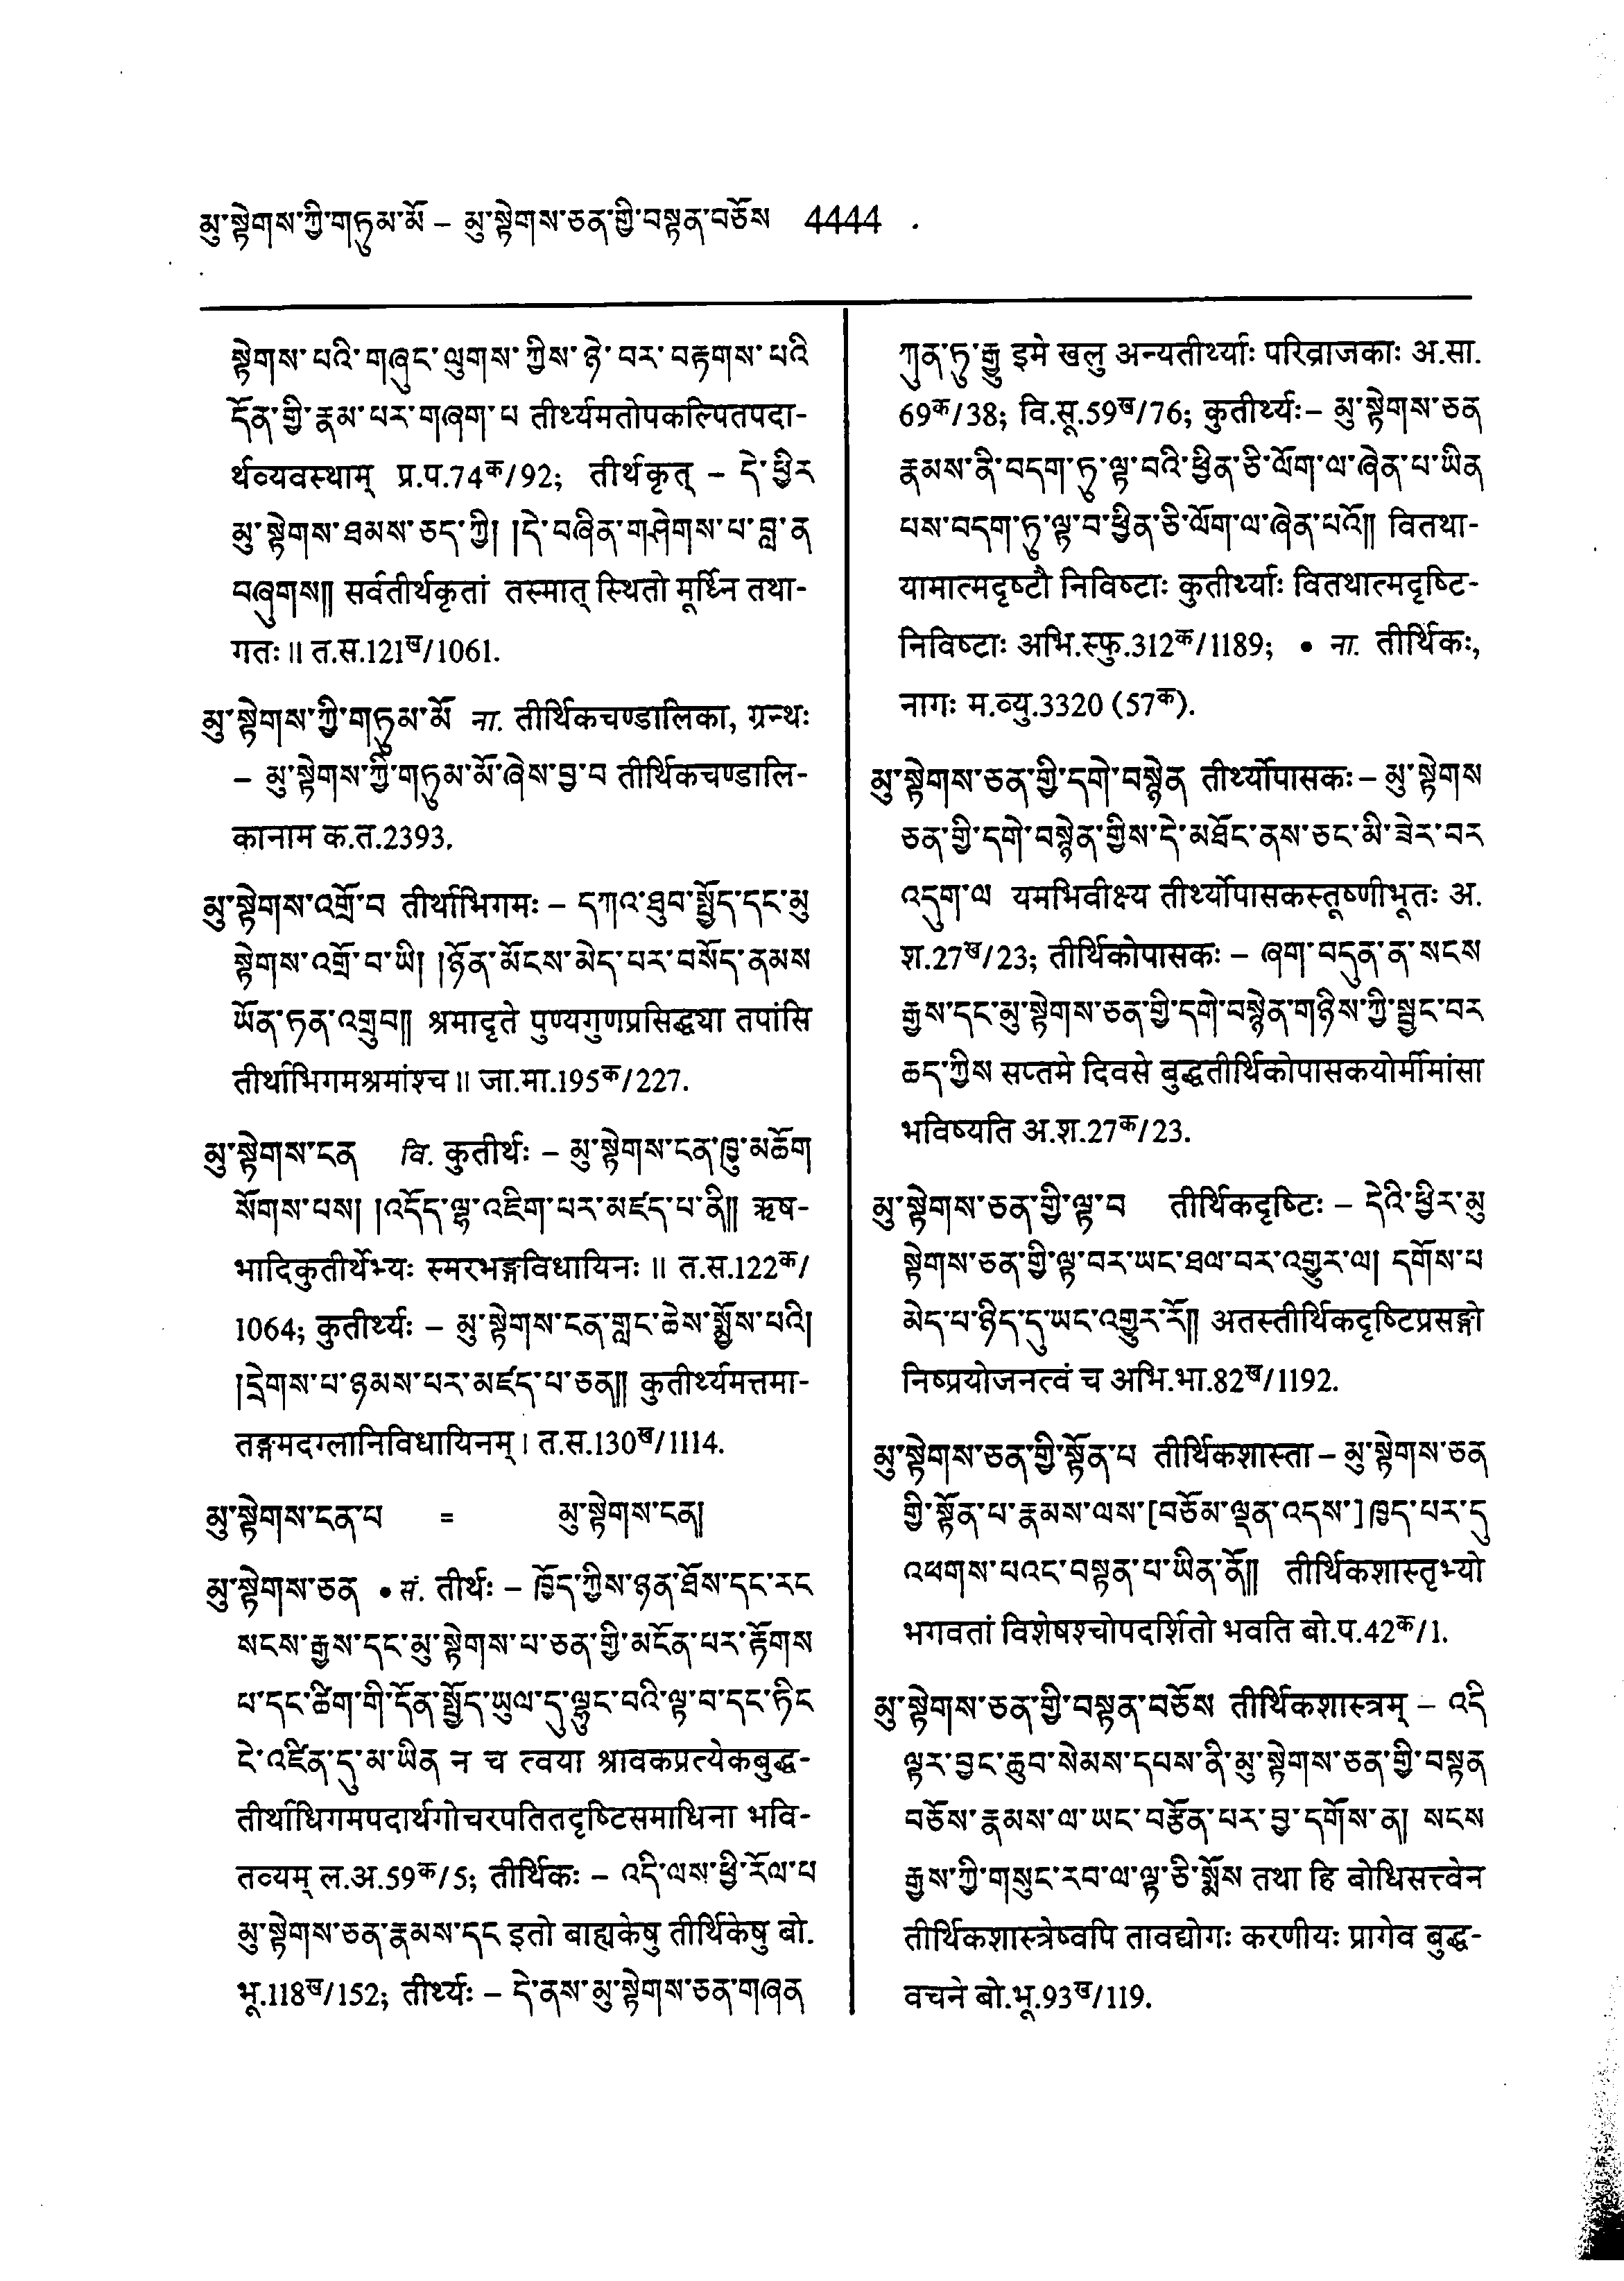 མུ་སྟེགས་ཀྱི་གཏུམ་མོ – མུ་སྟེགས་ཅན་གྱི་བསྟན་བཅོས 4444
སྟེགས་པའི་གཞུང་ལུགས་ཀྱིས་ཉེ་བར་བརྟགས་པའི
དོན་གྱི་རྣམ་པར་གཞག་པ तीर्थ्यमतोपकल्पितपदा-
र्थव्यवस्थाम् प्र.प.74क/92; तीर्थकृत् – དེ་ཕྱིར
མུ་སྟེགས་ཐམས་ཅད་ཀྱི། །དེ་བཞིན་གཤེགས་པ་བླ་ན
བཞུགས།། सर्वतीर्थकृतां तस्मात् स्थितो मूर्ध्नि तथा-
गतः॥ त.स.121ख/1061.
མུ་སྟེགས་ཀྱི་གཏུམ་མོ ना. तीर्थिकचण्डालिका, ग्रन्थः
– མུ་སྟེགས་ཀྱི་གཏུམ་མོ་ཞེས་བྱ་བ तीर्थिकचण्डालि-
कानाम क.त.2393.
མུ་སྟེགས་འགྲོ་བ तीर्थाभिगमः – དཀའ་ཐུབ་སྤྱོད་དང་མུ
སྟེགས་འགྲོ་བ་ཡི། །ཉོན་མོངས་མེད་པར་བསོད་ནམས
ཡོན་ཏན་འགྲུབ།། श्रमादृते पुण्यगुणप्रसिद्ध्या तपांसि
तीर्थाभिगमश्रमांश्च॥ जा.मा.195क/227.
མུ་སྟེགས་ངན वि. कुतीर्थः – མུ་སྟེགས་ངན་ཁྱུ་མཆོག
སོགས་པས། །འདོད་ལྷ་འཇིག་པར་མཛད་པ་ནི།། ऋष-
भादिकुतीर्थेभ्यः स्मरभङ्गविधायिनः॥ त.स.122क/
1064; कुतीर्थ्यः – མུ་སྟེགས་ངན་གླང་ཆེས་སྨྱོས་པའི།
།དྲེགས་པ་ཉམས་པར་མཛད་པ་ཅན།། कुतीर्थ्यमत्तमा-
तङ्गमदग्लानिविधायिनम्। त.स.130ख/1114.
མུ་སྟེགས་ངན་པ = མུ་སྟེགས་ངན།
མུ་སྟེགས་ཅན • सं. तीर्थः – ཁྱོད་ཀྱིས་ཉན་ཐོས་དང་རང
སངས་རྒྱས་དང་མུ་སྟེགས་པ་ཅན་གྱི་མངོན་པར་རྟོགས
པ་དང་ཚིག་གི་དོན་སྤྱོད་ཡུལ་དུ་ལྟུང་བའི་ལྟ་བ་དང་ཏིང
ངེ་འཛིན་དུ་མ་ཡིན न च त्वया श्रावकप्रत्येकबुद्ध-
तीर्थाधिगमपदार्थगोचरपतितदृष्टिसमाधिना भवि-
तव्यम् ल.अ.59क/5; तीर्थिकः – འདི་ལས་ཕྱི་རོལ་པ
མུ་སྟེགས་ཅན་རྣམས་དང इतो बाह्यकेषु तीर्थिकेषु बो.
भू.118ख/152; तीर्थ्यः – དེ་ནས་མུ་སྟེགས་ཅན་གཞན
ཀུན་ཏུ་རྒྱུ इमे खलु अन्यतीर्थ्याः परिव्राजकाः अ.सा.
69क/38; वि.सू.59ख/76; कुतीर्थ्यः – མུ་སྟེགས་ཅན
རྣམས་ནི་བདག་ཏུ་ལྟ་བའི་ཕྱིན་ཅི་ལོག་ལ་ཞེན་པ་ཡིན
པས་བདག་ཏུ་ལྟ་བ་ཕྱིན་ཅི་ལོག་ལ་ཞེན་པའོ།། वितथा-
यामात्मदृष्टौ निविष्टाः कुतीर्थ्याः वितथात्मदृष्टि-
निविष्टाः अभि.स्फु.312क/1189; • ना. तीर्थिकः,
नागः म.व्यु.3320 (57क).
མུ་སྟེགས་ཅན་གྱི་དགེ་བསྙེན तीर्थ्योपासकः – མུ་སྟེགས
ཅན་གྱི་དགེ་བསྙེན་གྱིས་དེ་མཐོང་ནས་ཅང་མི་ཟེར་བར
འདུག་ལ यमभिवीक्ष्य तीर्थ्योपासकस्तूष्णीभूतः अ.
श.27ख/23; तीर्थिकोपासकः – ཞག་བདུན་ན་སངས
རྒྱས་དང་མུ་སྟེགས་ཅན་གྱི་དགེ་བསྙེན་གཉིས་ཀྱི་སྦྱང་བར
ཆད་ཀྱིས सप्तमे दिवसे बुद्धतीर्थिकोपासकयोर्मीमांसा
भविष्यति अ.श.27क/23.
མུ་སྟེགས་ཅན་གྱི་ལྟ་བ तीर्थिकदृष्टिः – དེའི་ཕྱིར་མུ
སྟེགས་ཅན་གྱི་ལྟ་བར་ཡང་ཐལ་བར་འགྱུར་ལ། དགོས་པ
མེད་པ་ཉིད་དུ་ཡང་འགྱུར་རོ།། अतस्तीर्थिकदृष्टिप्रसङ्गो
निष्प्रयोजनत्वं च अभि.भा.82ख/1192.
མུ་སྟེགས་ཅན་གྱི་སྟོན་པ तीर्थिकशास्ता – མུ་སྟེགས་ཅན
གྱི་སྟོན་པ་རྣམས་ལས་[བཅོམ་ལྡན་འདས་]ཁྱད་པར་དུ
འཕགས་པའང་བསྟན་པ་ཡིན་ནོ།། तीर्थिकशास्तृभ्यो
भगवतां विशेषश्चोपदर्शितो भवति बो.प.42क/1.
མུ་སྟེགས་ཅན་གྱི་བསྟན་བཅོས तीर्थिकशास्त्रम् – འདི
ལྟར་བྱང་ཆུབ་སེམས་དཔས་ནི་མུ་སྟེགས་ཅན་གྱི་བསྟན
བཅོས་རྣམས་ལ་ཡང་བརྩོན་པར་བྱ་དགོས་ན། སངས
རྒྱས་ཀྱི་གསུང་རབ་ལ་ལྟ་ཅི་སྨོས तथा हि बोधिसत्त्वेन
तीर्थिकशास्त्रेष्वपि तावद्योगः करणीयः प्रागेव बुद्ध-
वचने बो.भू.93ख/119.